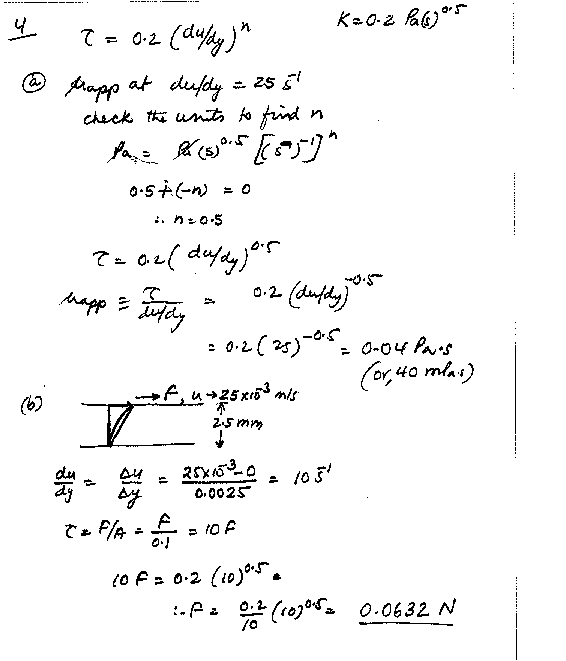 4 τ = 0.2 (du/dy)^n K=0.2 Pa(s)^0.5
(a) μapp at du/dy = 25 s^-1
check the units to find n
Pa = Pa (s)^0.5 [(s)^-1]^n
0.5 + (-n) = 0
∴ n = 0.5
τ = 0.2 (du/dy)^0.5
μapp ≡ τ / du/dy = 0.2 (du/dy)^-0.5
= 0.2 (25)^-0.5 = 0.04 Pa·s
(or, 40 mPa.s)
(b) → F, u → 25×10^-3 m/s
2.5 mm
du/dy = Δu/Δy = 25×10^-3 - 0 / 0.0025 = 10 s^-1
τ = F/A = F/0.1 = 10 F
10 F = 0.2 (10)^0.5
∴ F = 0.2/10 (10)^0.5 = 0.0632 N